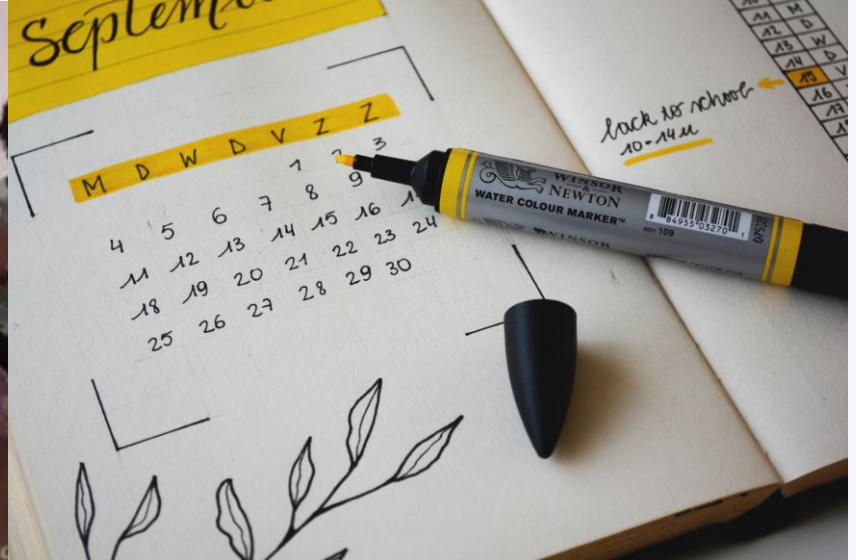 Septem
M D W D V Z Z
1 2 3
4 5 6 7 8 9
11 12 13 14 15 16
18 19 20 21 22 23 24
25 26 27 28 29 30
WINSOR
&
NEWTON
WATER COLOUR MARKER™
8 84955 03270 1
WINSOR
back to school
10-14u
11 M
12 D
13 W
14 D
15 V
16
17